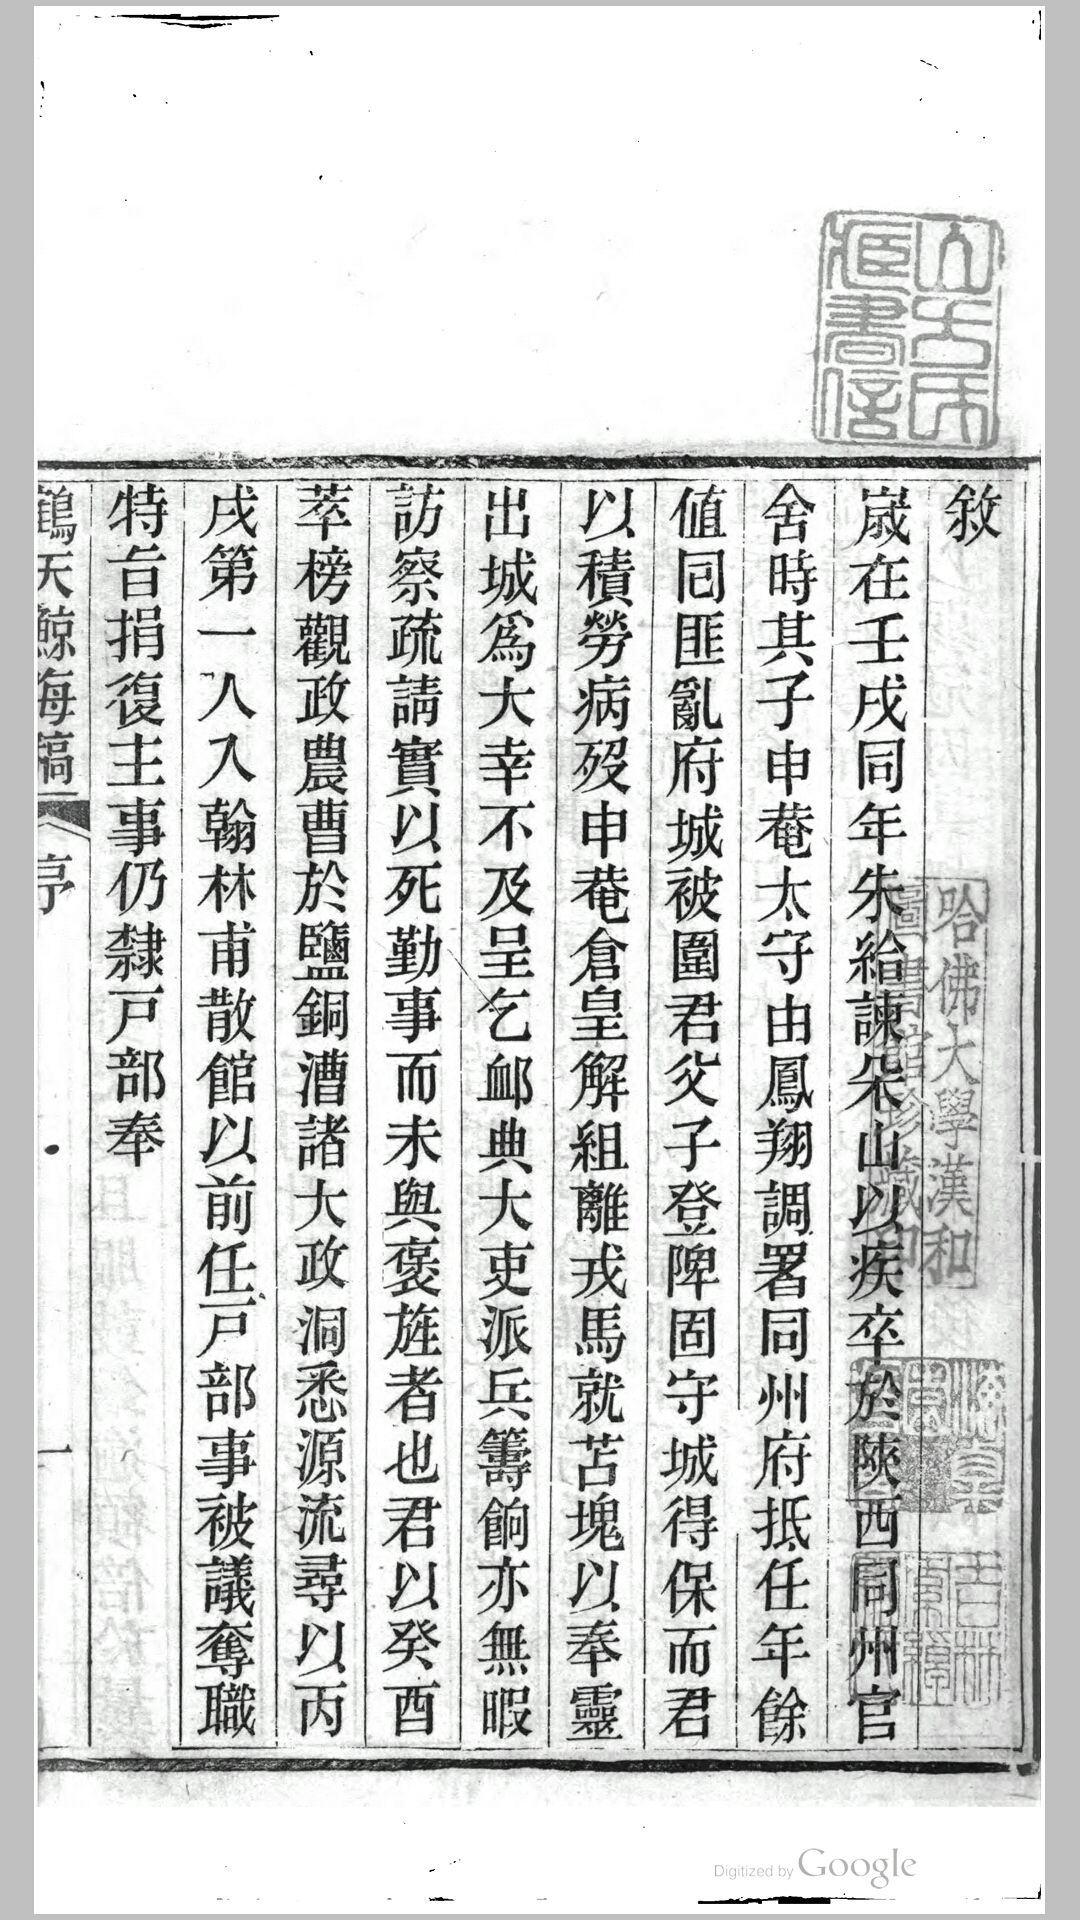 敘
歲在壬戌同年朱給諫朵山以疾卒於陝西同州官
舍時其子申菴太守由鳳翔調署同州府抵任年餘
値囘匪亂府城被圍君父子登陴固守城得保而君
以積勞病歿申菴倉皇解組離戎馬就苫塊以奉靈
出城爲大幸不及呈乞卹典大吏派兵籌餉亦無暇
訪察疏請實以死勤事而未與褒旌者也君以癸酉
萃榜觀政農曹於鹽銅漕諸大政洞悉源流尋以丙
戌第一人入翰林甫散館以前任戸部事被議奪職
特旨捐復主事仍隸戸部奉
鶴天鯨海稿 序 一
哈佛大學漢和
圖書館珍藏印
Digitized by Google